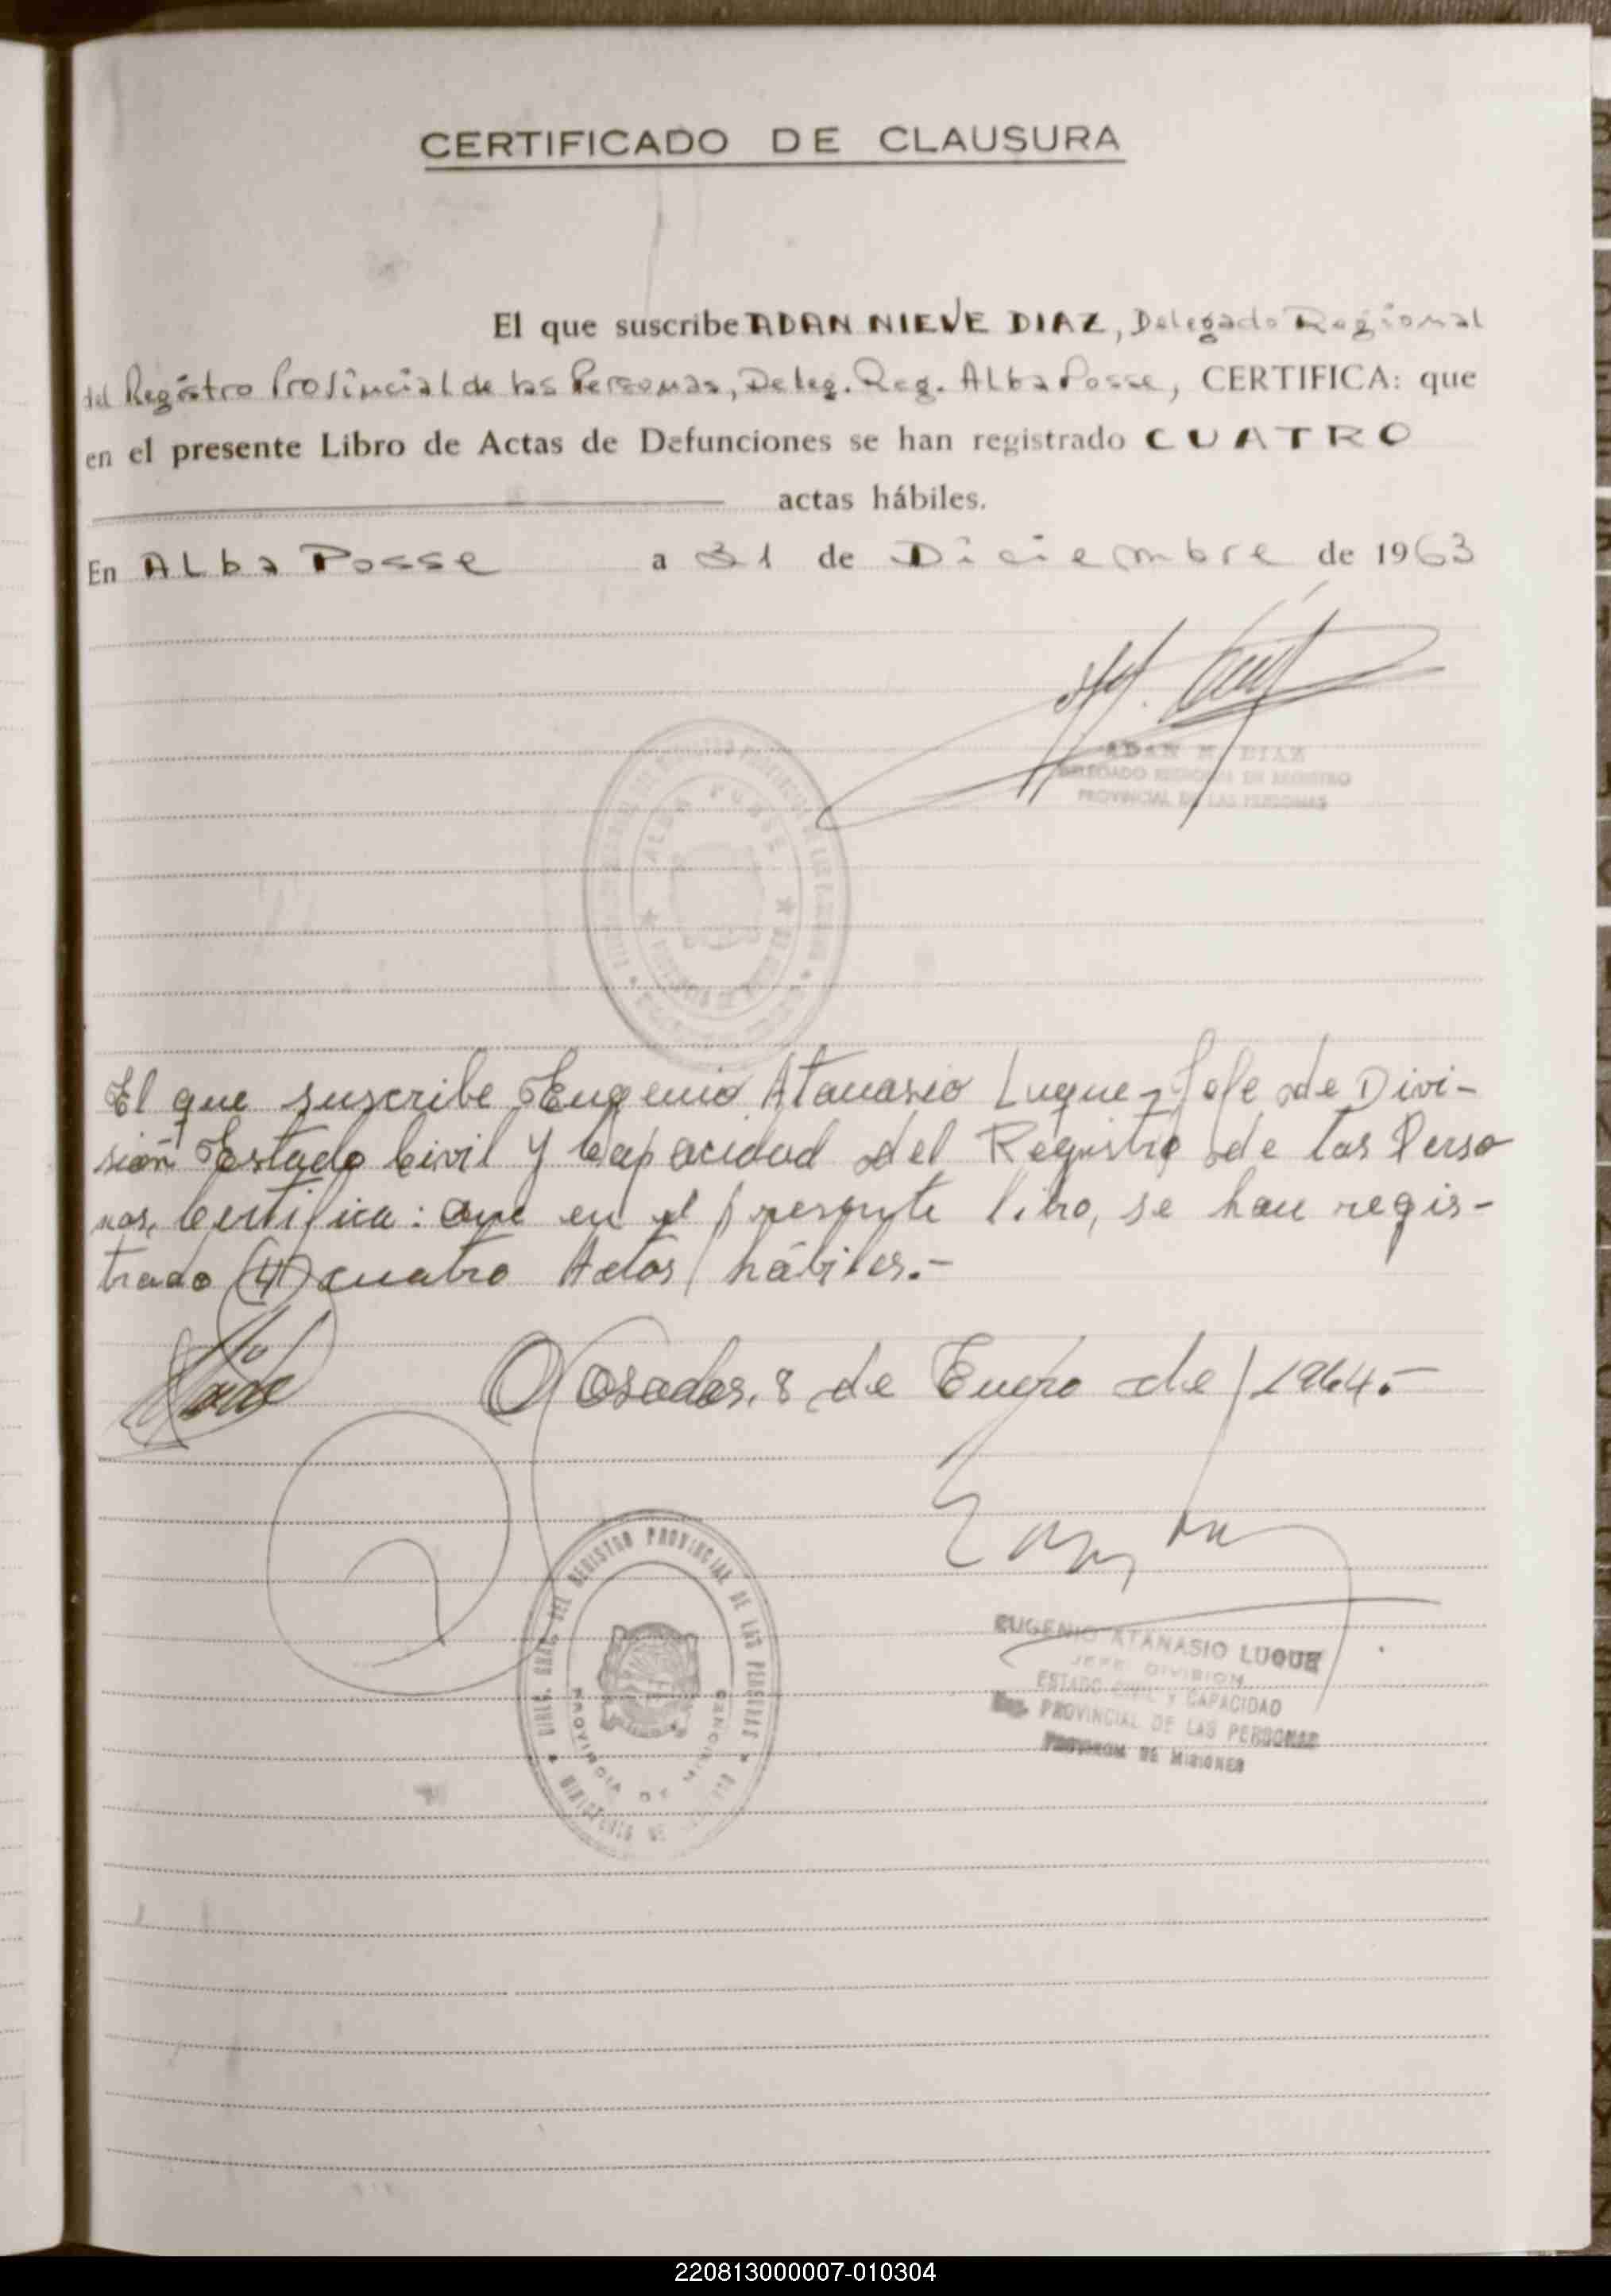 CERTIFICADO DE CLAUSURA
El que suscribe ADAN NIEVE DIAZ, Delegado Regional
del Registro Provincial de las Personas, Deleg. Reg. Alba Posse, CERTIFICA: que
en el presente Libro de Actas de Defunciones se han registrado CUATRO
actas hábiles.
En Alba Posse a 31 de Diciembre de 1963
ADAN N. DIAZ
DELEGADO REGIONAL DE REGISTRO
PROVINCIAL DE LAS PERSONAS
ALBA POSSE
El que suscribe Eugenio Atanasio Luque, Jefe de Divi-
sión Estado Civil y Capacidad del Registro de las Perso
nas, Certifica: que en el presente libro, se han regis-
trado (4) cuatro Actas hábiles.-
Posadas, 8 de Enero de 1964.-
DIREC. GRAL. DEL REGISTRO PROVINCIAL DE LAS PERSONAS
PROVINCIA DE MISIONES
EUGENIO ATANASIO LUQUE
JEFE DIVISION
ESTADO CIVIL Y CAPACIDAD
Reg. PROVINCIAL DE LAS PERSONAS
PROVINCIA DE MISIONES
220813000007-010304